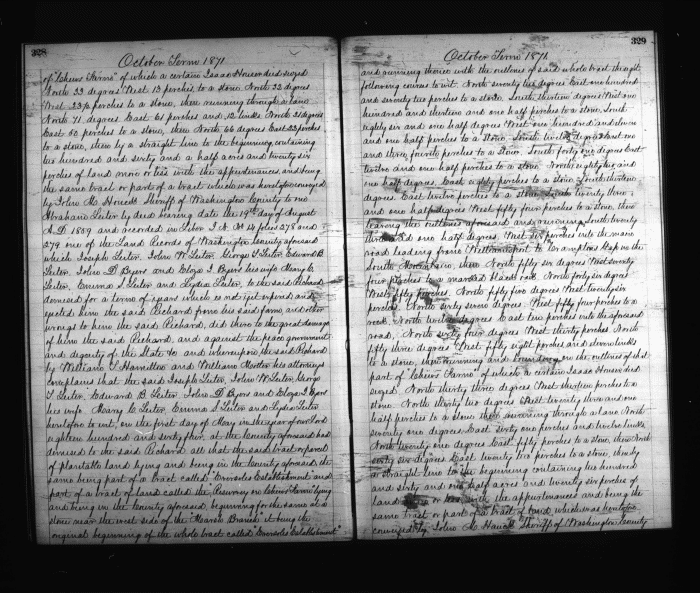 328
October Term 1871
of "Chews Farm" of which a certain Isaac Houser died seized
North 33 degrees West 13 perches to a stone, North 32 degrees
West 23½ perches to a stone, then running through a lane
North 71 degrees East 61 perches and 12 links North 21 degrees
East 50 perches to a stone, then North 66 degrees East 22 perches
to a stone, then by a straight line to the beginning, containing
two hundred and sixty and a half acres and twenty six
perches of land more or less with the appurtenances, and being
the same tract or part of a tract which was heretofore conveyed
by John M Sheriff of Washington County to one
Abraham Leiter by deed bearing date the 19th day of August
A.D 1809 and recorded in Liber folios 278 and
279 one of the Land Records of Washington County aforesaid
which Joseph Leiter, John W Leiter, George T Leiter Edward B
Leiter, John D Byers and Eloya I Byers his wife Mary C
Leiter, Emma I Leiter and Lydia Leiter, to the said Richard
demised for a term of years which is not yet expired and
ejected him the said Richard from his said farm, and other
wrongs to him the said Richard, did then to the great damage
of him the said Richard, and against the peace government
and dignity of the State &c and whereupon the said Richard
by William T Hamilton and William Motter his attorneys
complains that the said Joseph Leiter, John W Leiter, George
T Leiter, Edward B Leiter John D Byers and Eloya I Byers
his wife, Mary C Leiter, Emma I Leiter and Lydia Leiter
heretofore to wit, on the first day of May in the year of our Lord
eighteen hundred and sixty four, at the County aforesaid had
demised to the said Richard all that the said tract or parcel
of plantable land lying and being in the County aforesaid, the
same being part of a tract called Eversoles Establishment and
part of a tract of land called the Resurvey on Chews Farm lying
and being in the County aforesaid, beginning for the same at a
stone near the west side of the "Marsh Branch" it being the
original beginning of the whole tract called "Eversoles Establishment"
329
October Term 1871
and running thence with the outlines of said whole tract the eight
following courses to wit. North seventy two degrees East one hundred
and seventy two perches to a stone, South thirteen degrees West one
hundred and thirteen and one half perches to a stone, South
eighty six and one half degrees West one hundred and eleven
and one half perches to a stone South twelve degrees East one
and three fourths perches to a stone, South forty one degrees East
twelve and one half perches to a stone North eighty two and
one half degrees East eighty perches to a stone South thirteen
degrees East twelve perches to a stone South twenty three
and one half degrees West fifty four perches to a stone, then
leaving the outlines aforesaid and running South twenty
three and one half degrees West six perches into the main
road leading from Williamsport to Cramptons Gap in the
South Mountain, then North fifty six degrees West seventy
four perches to a marked black oak North forty six degrees
West fifty perches, North fifty five degrees West twenty six
perches North sixty seven degrees West fifty four perches to a
rock North twelve degrees East ten perches into the aforesaid
road, North sixty four degrees West thirty perches North
fifty three degrees West fifty eight perches and eleven links
to a stone, then running and bounding on the outlines of that
part of "Chews Farm" of which a certain Isaac Houser died
seized North thirty three degrees West thirteen perches to a
stone North thirty two degrees West twenty three and one
half perches to a stone then running through a lane North
seventy one degrees East sixty one perches and twelve links
North twenty one degrees East fifty perches to a stone, then North
sixty six degrees East twenty two perches to a stone, thence by
a straight line to the beginning containing two hundred
and sixty and one half acres and twenty six perches of
land more or less with the appurtenances and being the
same tract or part of a tract of land which was heretofore
conveyed by John M Sheriff of Washington County